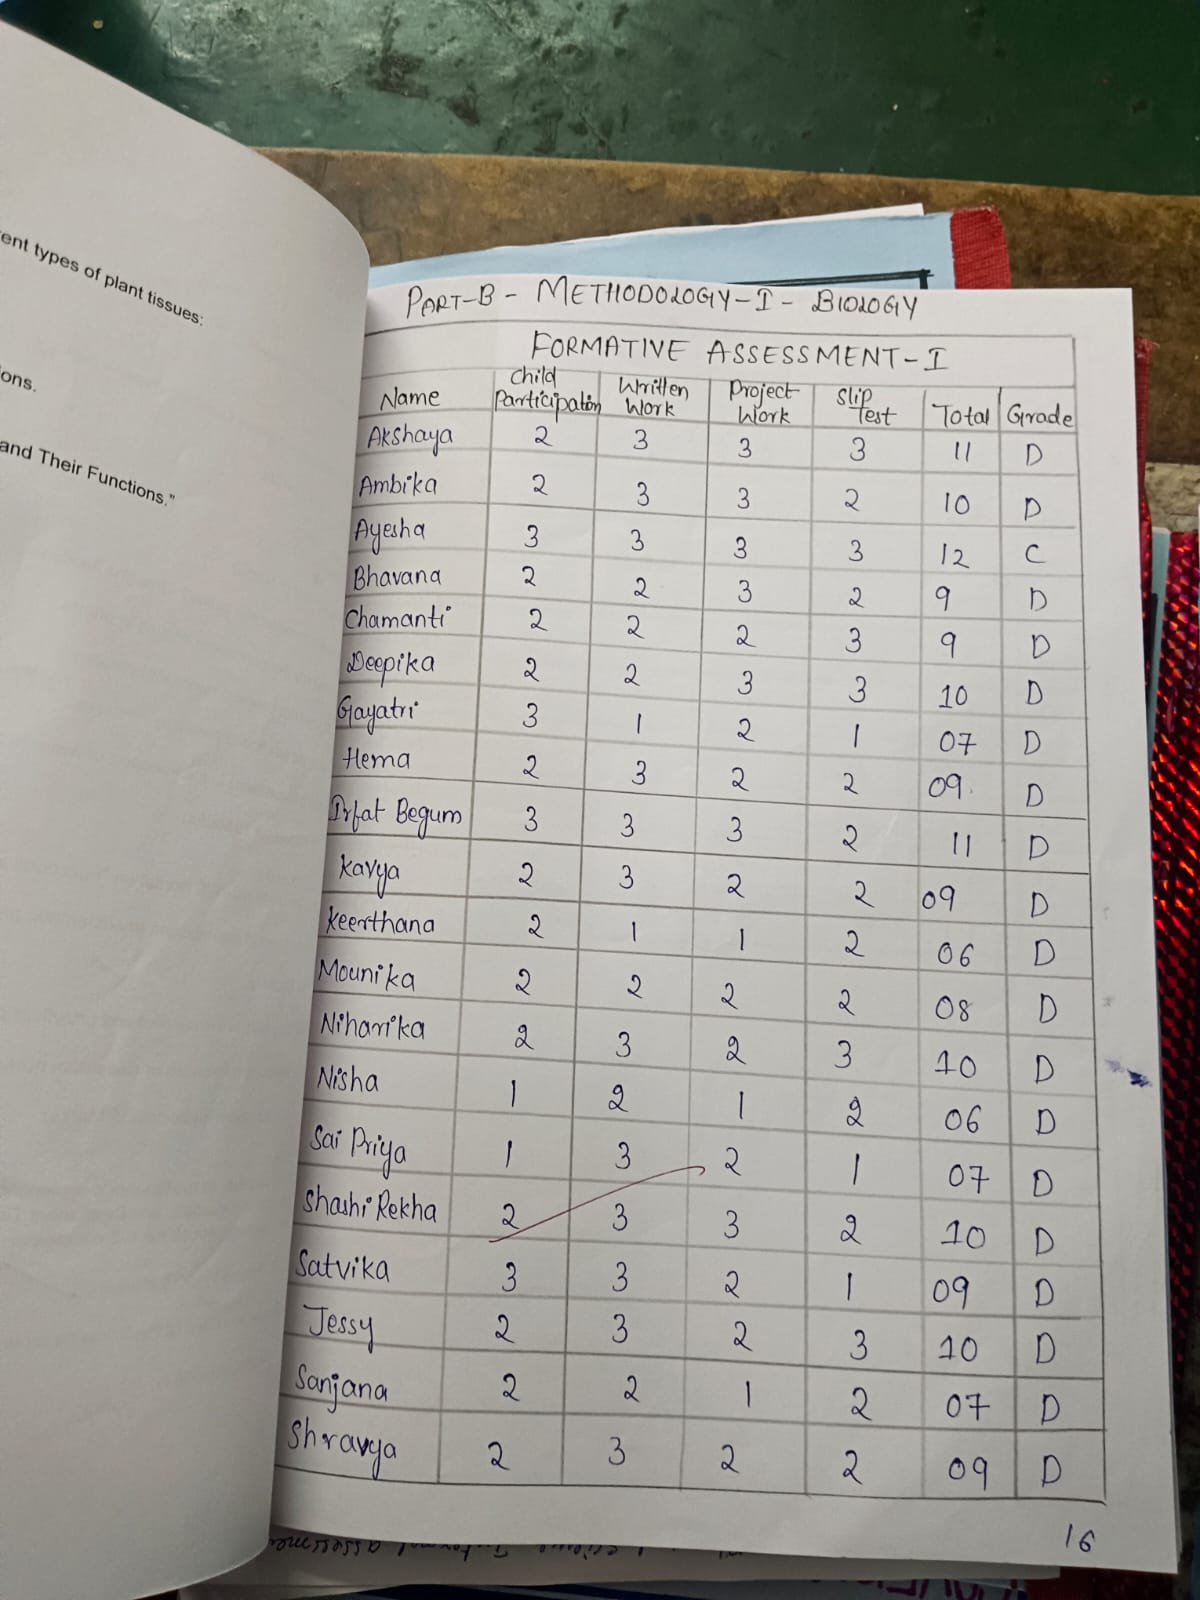 ent types of plant tissues:
ons.
and Their Functions."
PART-B - METHODOLOGY-I - BIOLOGY
FORMATIVE ASSESSMENT-I
Name Child Participation Written Work Project Work Slip Test Total Grade
Akshaya 2 3 3 3 11 D
Ambika 2 3 3 2 10 D
Ayesha 3 3 3 3 12 C
Bhavana 2 2 3 2 9 D
Chamanti 2 2 2 3 9 D
Deepika 2 2 3 3 10 D
Gayatri 3 1 2 1 07 D
Hema 2 3 2 2 09 D
Irfat Begum 3 3 3 2 11 D
Kavya 2 3 2 2 09 D
Keerthana 2 1 1 2 06 D
Mounika 2 2 2 2 08 D
Niharika 2 3 2 3 10 D
Nisha 1 2 1 2 06 D
Sai Priya 1 3 2 1 07 D
Shashi Rekha 2 3 3 2 10 D
Satvika 3 3 2 1 09 D
Jessy 2 3 2 3 10 D
Sanjana 2 2 1 2 07 D
Shravya 2 3 2 2 09 D
16